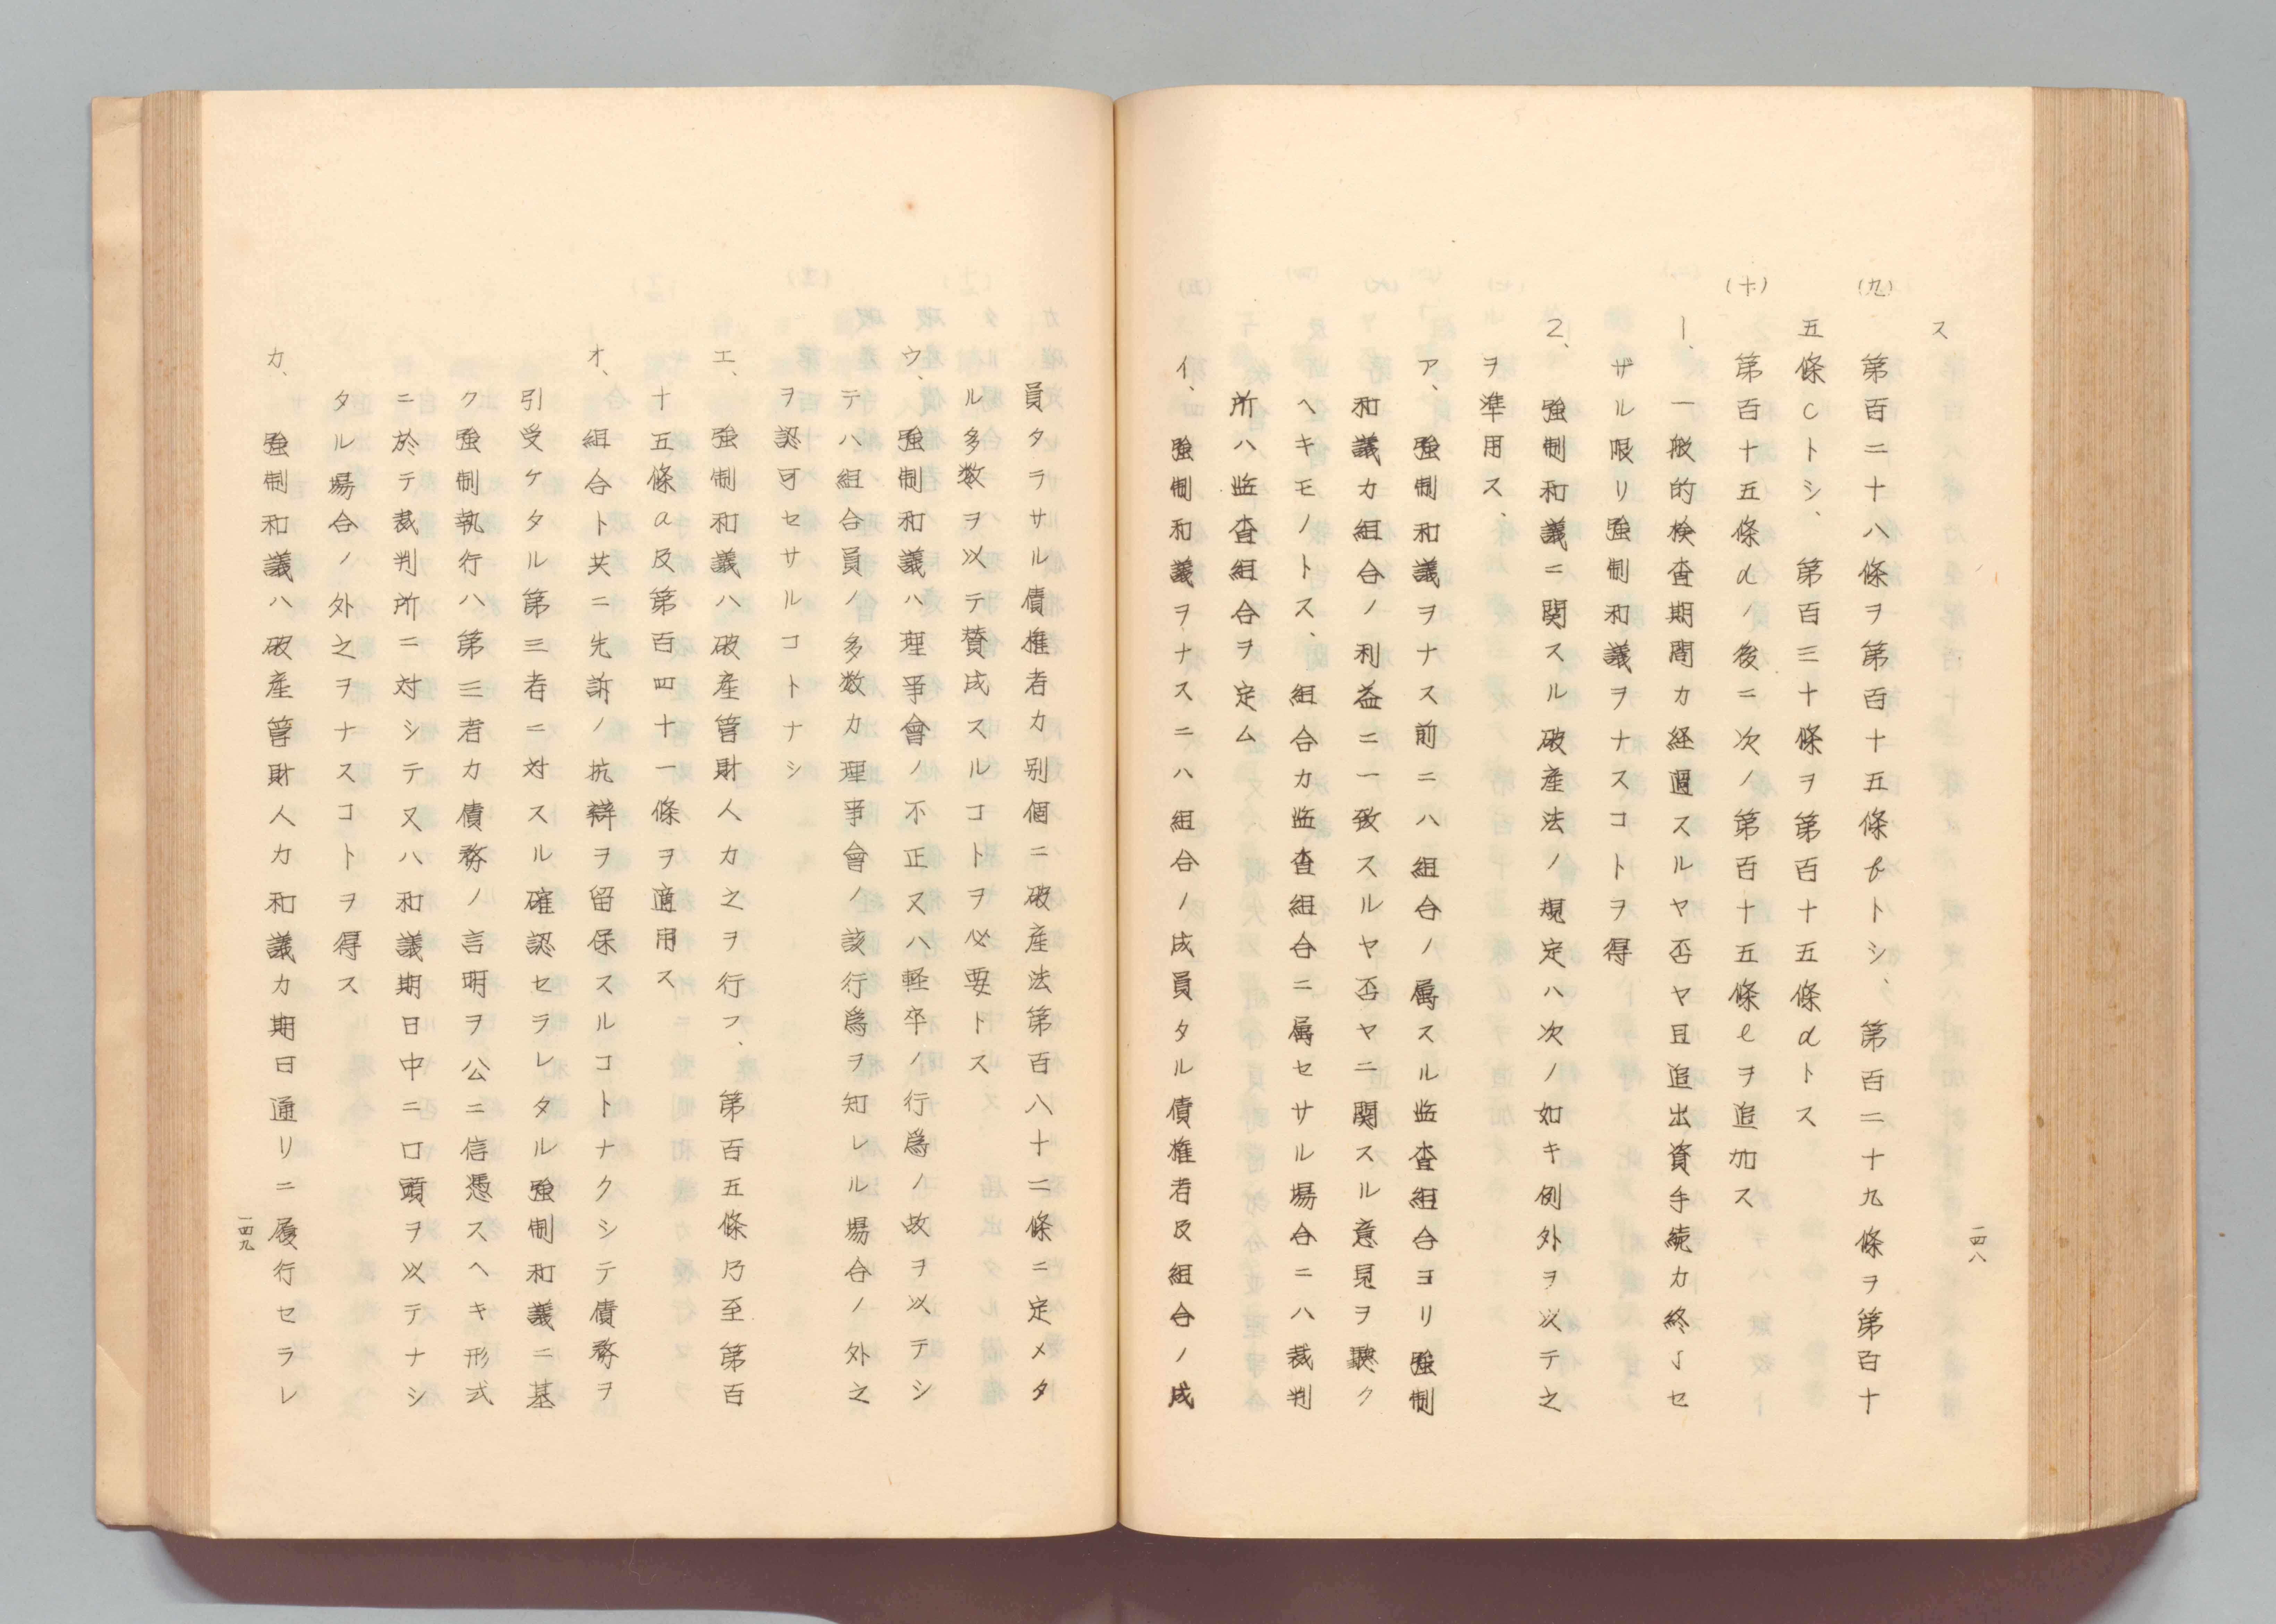 ス
(九) 第百二十八條ヲ第百十五條bトシ、第百二十九條ヲ第百十
五條cトシ、第百三十條ヲ第百十五條dトス
(十) 第百十五條dノ後ニ次ノ第百十五條eヲ追加ス
1、一般的検査期間カ経過スルヤ否ヤ且追出資手続カ終了セ
ザル限リ強制和議ヲナスコトヲ得
2、強制和議ニ関スル破産法ノ規定ハ次ノ如キ例外ヲ以テ之
ヲ準用ス、
ア、強制和議ヲナス前ニハ組合ノ属スル監査組合ヨリ強制
和議カ組合ノ利益ニ一致スルヤ否ヤニ関スル意見ヲ聴ク
ヘキモノトス、組合カ監査組合ニ属セサル場合ニハ裁判
所ハ監査組合ヲ定ム
イ、強制和議ヲナスニハ組合ノ成員タル債権者及組合ノ成
一四八
員タラサル債権者カ別個ニ破産法第百八十二條ニ定メタ
ル多数ヲ以テ賛成スルコトヲ必要トス
ウ、強制和議ハ理事會ノ不正又ハ軽卒ノ行為ノ故ヲ以テシ
テハ組合員ノ多数カ理事會ノ該行為ヲ知レル場合ノ外之
ヲ認可セサルコトナシ
エ、強制和議ハ破産管財人カ之ヲ行フ、第百五條乃至第百
十五條a及第百四十一條ヲ適用ス
オ、組合ト共ニ先訴ノ抗辯ヲ留保スルコトナクシテ債務ヲ
引受ケタル第三者ニ対スル確認セラレタル強制和議ニ基
ク強制執行ハ第三者カ債務ノ言明ヲ公ニ信憑スヘキ形式
ニ於テ裁判所ニ対シテ又ハ和議期日中ニ口頭ヲ以テナシ
タル場合ノ外之ヲナスコトヲ得ス
カ、強制和議ハ破産管財人カ和議カ期日通リニ履行セラレ
一四九